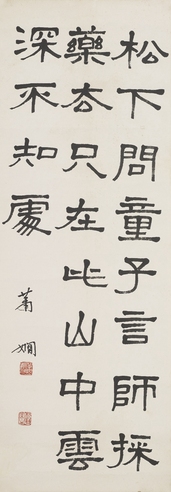 松下問童子言師採
藥去只在此山中雲
深不知處
蕭嫻